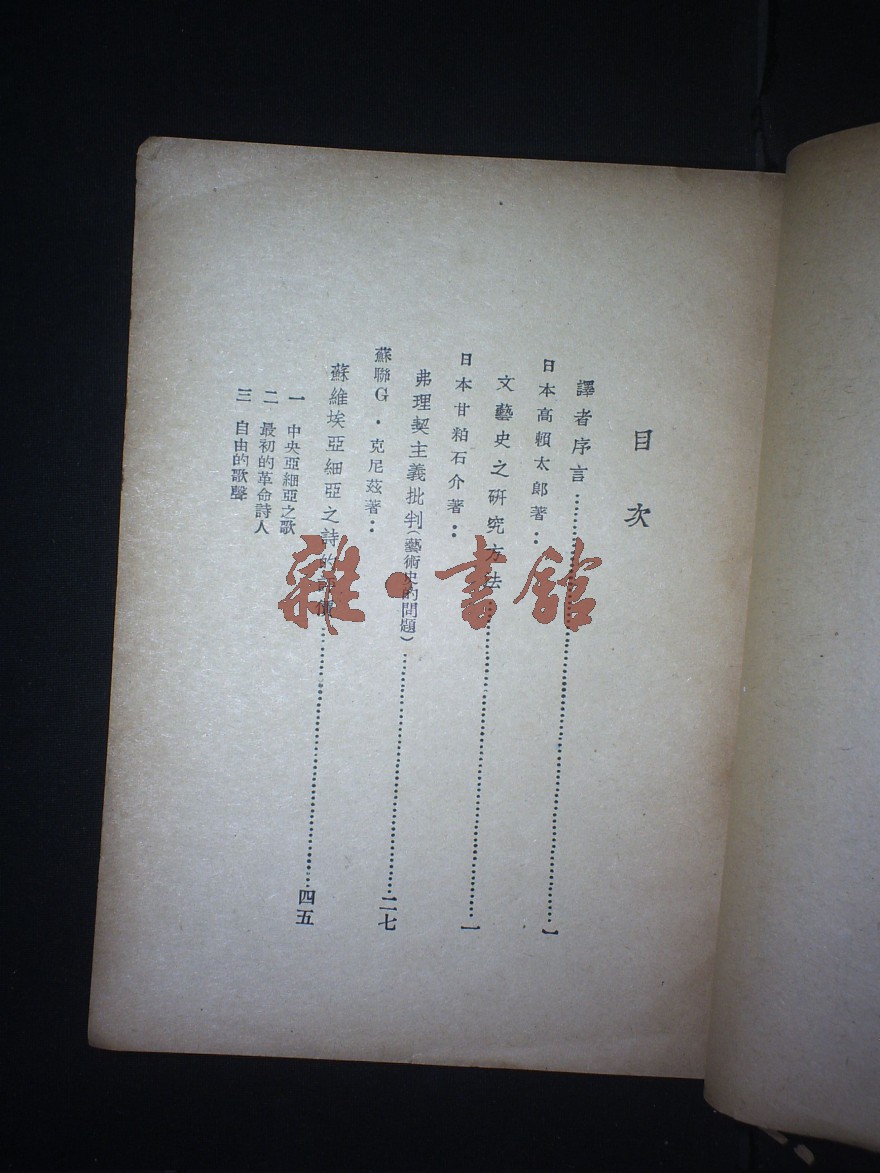 目次
譯者序言……………………………………一
日本高賴太郎著：
文藝史之研究方法……………………………………一
日本甘粕石介著：
弗理契主義批判（藝術史的問題）……………………………………二七
蘇聯G・克尼茲著：
蘇維埃亞細亞之詩的評價……………………………………四五
一 中央亞細亞之歌
二 最初的革命詩人
三 自由的歌聲
雜・書館